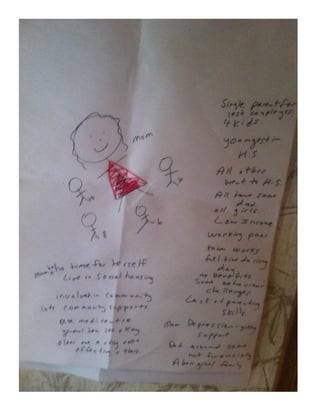 mom
4
10
8
6
Single parent for
last
4 kids.
youngest in
H.S.
All others
went to H.S.
All have same
dad.
all girls.
Low Income
working poor
mom works
full time during
day
no benefits
Some behaviour
challenges
Lack of parenting
skills.
Mom Depression - getting
support
Dad around some
not financially
Aboriginal family
no time for herself
Live in Social housing
involved in community
lots community supports.
are medicative
older one acting out
effecting others